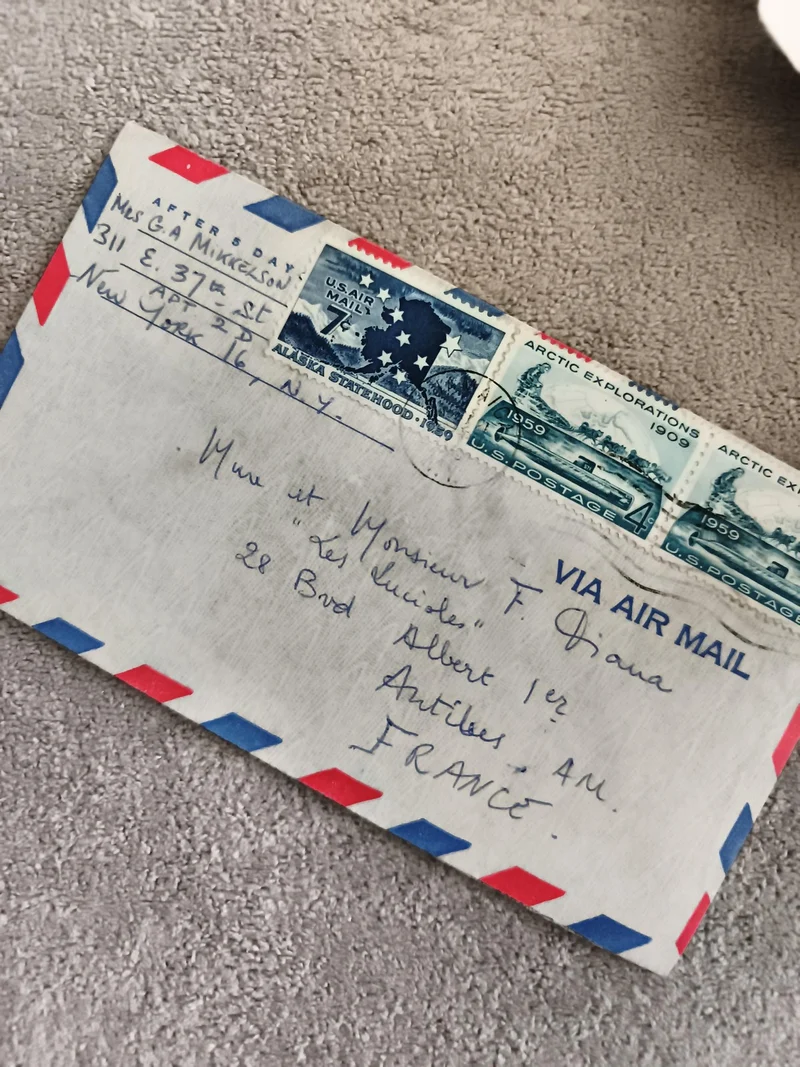 AFTER 5 DAYS
Mrs G.A MIKKELSON
311 E. 37th St
APT 2D
New York 16, N.Y.
U.S. AIR
MAIL
7¢
ALASKA STATEHOOD · 1959
ARCTIC EXPLORATIONS
1909
1959
U.S. POSTAGE 4¢
ARCTIC EX
1959
U.S. POSTAGE
VIA AIR MAIL
Mme et Monsieur F. Diana
"Les Lucioles"
28 Bvd Albert 1er
Antibes. AM.
FRANCE.